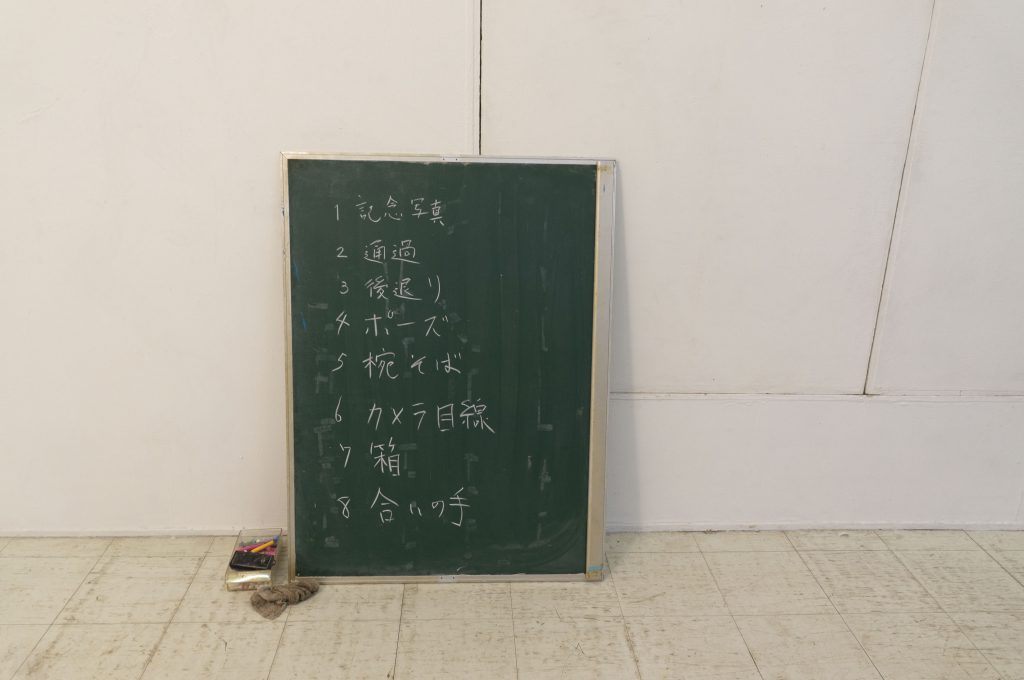 1 記念写真
2 通過
3 後退り
4 ポーズ
5 椀そば
6 カメラ目線
7 箱
8 合いの手